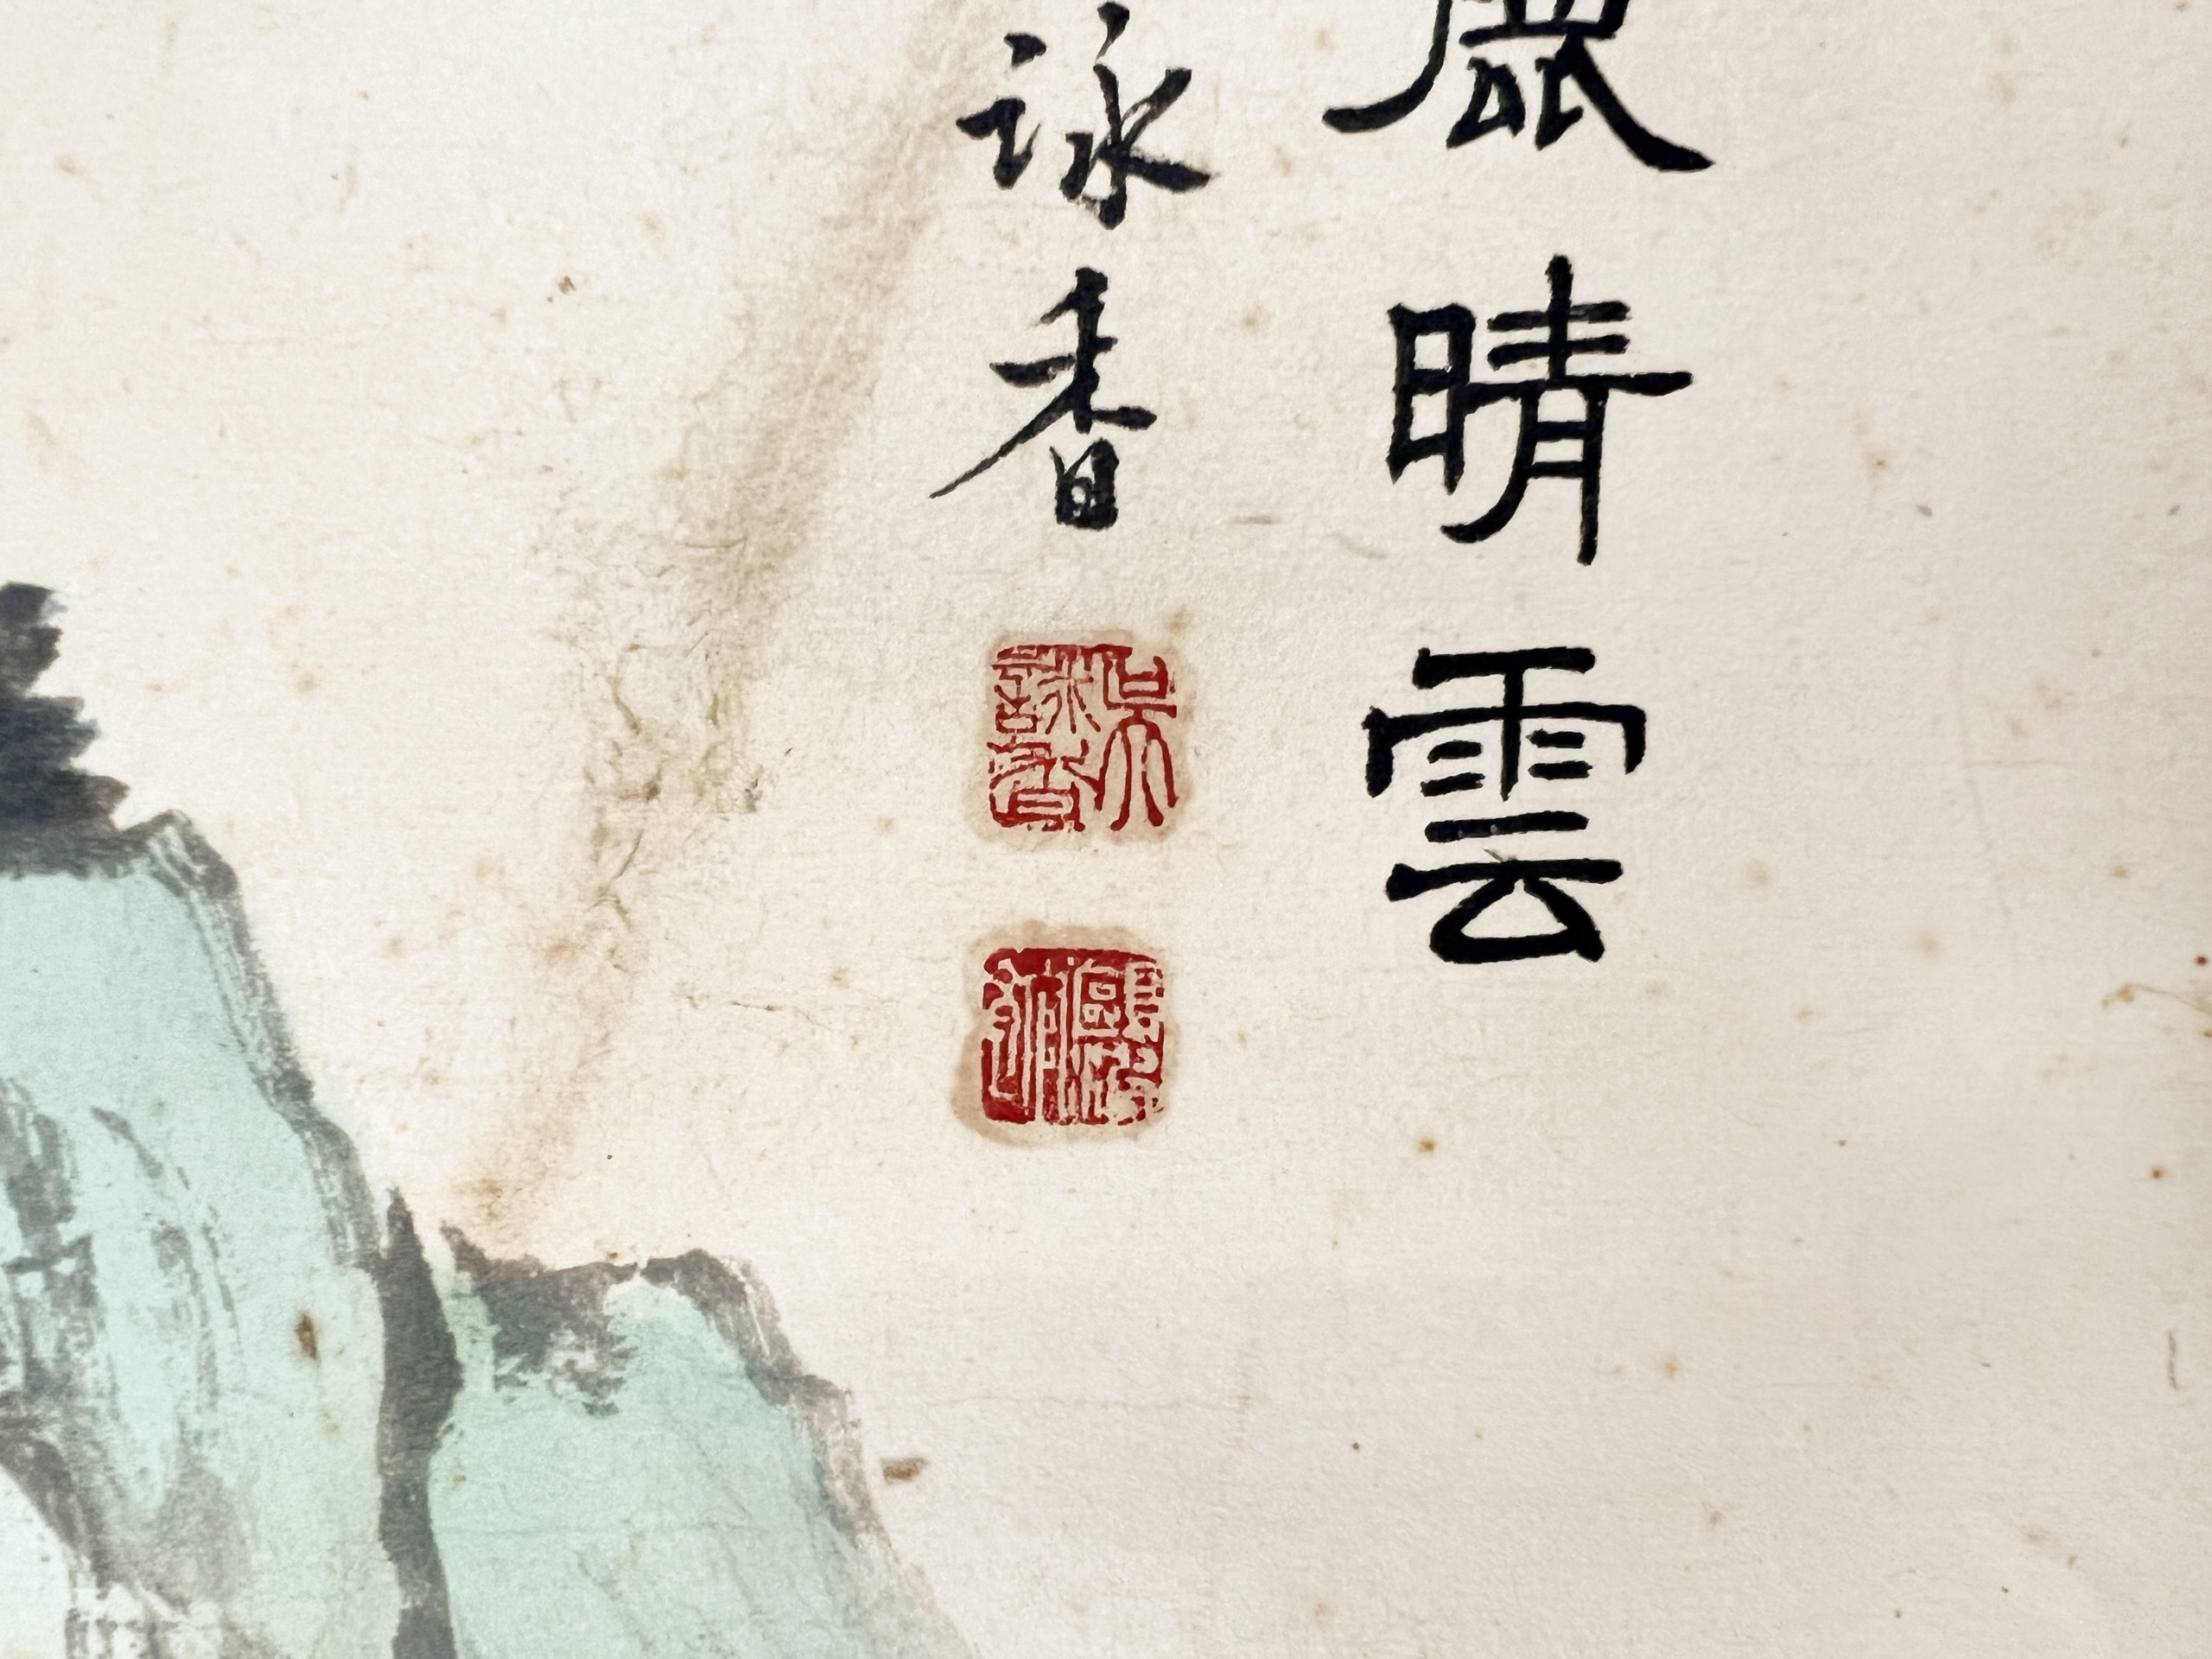 晴雲
詠香
吳詠香